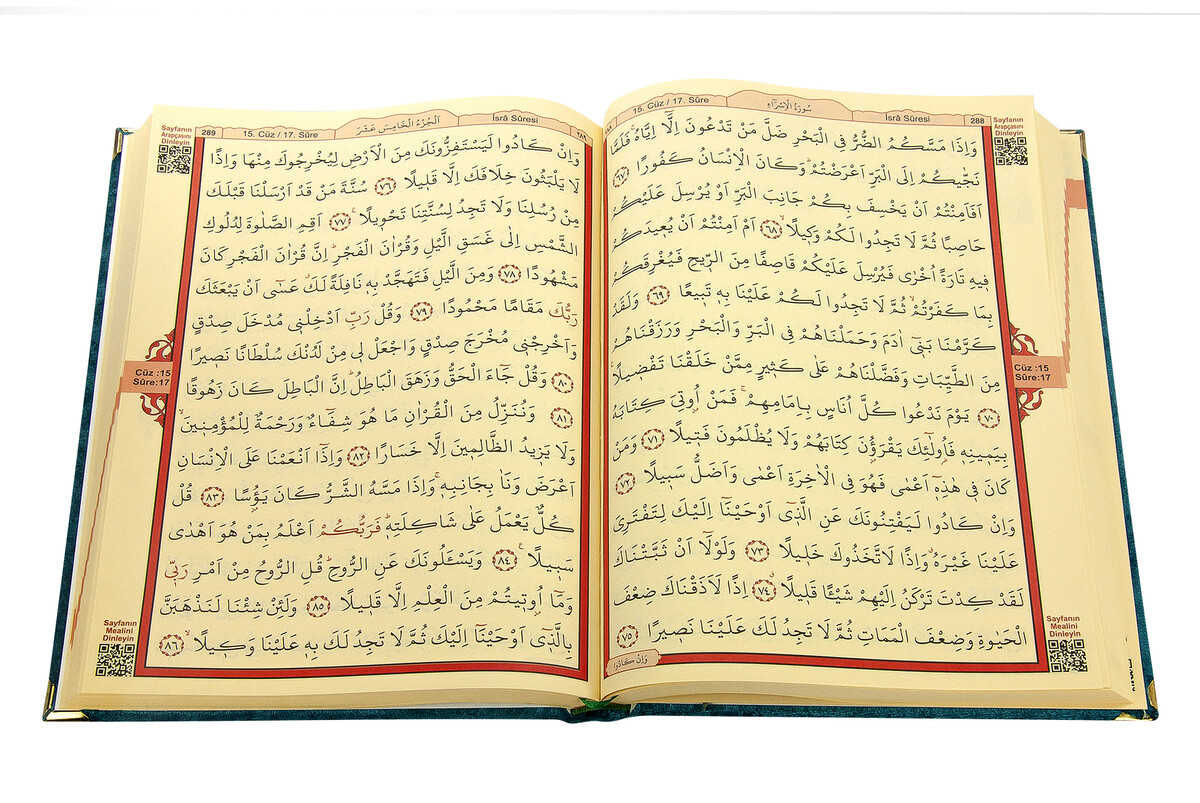 15. Cüz / 17. Sûre
سُورَةُ الْاِسْرَٓاءِ
İsrâ Sûresi
288
Sayfanın
Arapçasını
Dinleyin
وَاِذَا مَسَّكُمُ الضُّرُّ فِي الْبَحْرِ ضَلَّ مَنْ تَدْعُونَ اِلَّٓا اِيَّاهُۚ فَلَمَّا
نَجّٰيكُمْ اِلَى الْبَرِّ اَعْرَضْتُمْۜ وَكَانَ الْاِنْسَانُ كَفُورًا ﴿٦٧﴾
اَفَاَمِنْتُمْ اَنْ يَخْسِفَ بِكُمْ جَانِبَ الْبَرِّ اَوْ يُرْسِلَ عَلَيْكُمْ
حَاصِبًا ثُمَّ لَا تَجِدُوا لَكُمْ وَك۪يلًاۙ ﴿٦٨﴾ اَمْ اَمِنْتُمْ اَنْ يُع۪يدَكُمْ
ف۪يهِ تَارَةً اُخْرٰى فَيُرْسِلَ عَلَيْكُمْ قَاصِفًا مِنَ الرّ۪يحِ فَيُغْرِقَكُمْ
بِمَا كَفَرْتُمْۙ ثُمَّ لَا تَجِدُوا لَكُمْ عَلَيْنَا بِه۪ تَب۪يعًا ﴿٦٩﴾ وَلَقَدْ
كَرَّمْنَا بَن۪ٓي اٰدَمَ وَحَمَلْنَاهُمْ فِي الْبَرِّ وَالْبَحْرِ وَرَزَقْنَاهُمْ
مِنَ الطَّيِّبَاتِ وَفَضَّلْنَاهُمْ عَلٰى كَث۪يرٍ مِمَّنْ خَلَقْنَا تَفْض۪يلًا۟
﴿٧٠﴾ يَوْمَ نَدْعُوا كُلَّ اُنَاسٍ بِاِمَامِهِمْۚ فَمَنْ اُو۫تِيَ كِتَابَهُ
بِيَم۪ينِه۪ فَاُو۬لٰٓئِكَ يَقْرَؤُ۫نَ كِتَابَهُمْ وَلَا يُظْلَمُونَ فَت۪يلًا ﴿٧١﴾ وَمَنْ
كَانَ ف۪ي هٰذِه۪ٓ اَعْمٰى فَهُوَ فِي الْاٰخِرَةِ اَعْمٰى وَاَضَلُّ سَب۪يلًا ﴿٧٢﴾
وَاِنْ كَادُوا لَيَفْتِنُونَكَ عَنِ الَّذ۪ٓي اَوْحَيْنَٓا اِلَيْكَ لِتَفْتَرِيَ
عَلَيْنَا غَيْرَهُۗ وَاِذًا لَاتَّخَذُوكَ خَل۪يلًا ﴿٧٣﴾ وَلَوْلَٓا اَنْ ثَبَّتْنَاكَ
لَقَدْ كِدْتَ تَرْكَنُ اِلَيْهِمْ شَيْـًٔا قَل۪يلًاۗ ﴿٧٤﴾ اِذًا لَاَذَقْنَاكَ ضِعْفَ
الْحَيٰوةِ وَضِعْفَ الْمَمَاتِ ثُمَّ لَا تَجِدُ لَكَ عَلَيْنَا نَص۪يرًا ﴿٧٥﴾
وَاِنْ كَادُوا
Cüz :15
Sûre:17
Sayfanın
Mealini
Dinleyin
Sayfanın
Arapçasını
Dinleyin
289
15. Cüz / 17. Sûre
اَلْجُزْءُ الْخَامِسَ عَشَرَ
İsrâ Sûresi
٢٨٩
وَاِنْ كَادُوا لَيَسْتَفِزُّونَكَ مِنَ الْاَرْضِ لِيُخْرِجُوكَ مِنْهَا وَاِذًا
لَا يَلْبَثُونَ خِلَافَكَ اِلَّا قَل۪يلًا ﴿٧٦﴾ سُنَّةَ مَنْ قَدْ اَرْسَلْنَا قَبْلَكَ
مِنْ رُسُلِنَا وَلَا تَجِدُ لِسُنَّتِنَا تَحْو۪يلًا۟ ﴿٧٧﴾ اَقِمِ الصَّلٰوةَ لِدُلُوكِ
الشَّمْسِ اِلٰى غَسَقِ الَّيْلِ وَقُرْاٰنَ الْفَجْرِۜ اِنَّ قُرْاٰنَ الْفَجْرِ كَانَ
مَشْهُودًا ﴿٧٨﴾ وَمِنَ الَّيْلِ فَتَهَجَّدْ بِه۪ نَافِلَةً لَكَۗ عَسٰٓى اَنْ يَبْعَثَكَ
رَبُّكَ مَقَامًا مَحْمُودًا ﴿٧٩﴾ وَقُلْ رَبِّ اَدْخِلْن۪ي مُدْخَلَ صِدْقٍ
وَاَخْرِجْن۪ي مُخْرَجَ صِدْقٍ وَاجْعَلْ ل۪ي مِنْ لَدُنْكَ سُلْطَانًا نَص۪يرًا
﴿٨٠﴾ وَقُلْ جَٓاءَ الْحَقُّ وَزَهَقَ الْبَاطِلُۜ اِنَّ الْبَاطِلَ كَانَ زَهُوقًا
﴿٨١﴾ وَنُنَزِّلُ مِنَ الْقُرْاٰنِ مَا هُوَ شِفَٓاءٌ وَرَحْمَةٌ لِلْمُؤْمِن۪ينَۙ
وَلَا يَز۪يدُ الظَّالِم۪ينَ اِلَّا خَسَارًا ﴿٨٢﴾ وَاِذَٓا اَنْعَمْنَا عَلَى الْاِنْسَانِ
اَعْرَضَ وَنَاٰ بِجَانِبِه۪ۚ وَاِذَا مَسَّهُ الشَّرُّ كَانَ يَؤُ۫سًا ﴿٨٣﴾ قُلْ
كُلٌّ يَعْمَلُ عَلٰى شَاكِلَتِه۪ۜ فَرَبُّكُمْ اَعْلَمُ بِمَنْ هُوَ اَهْدٰى
سَب۪يلًا۟ ﴿٨٤﴾ وَيَسْـَٔلُونَكَ عَنِ الرُّوحِۜ قُلِ الرُّوحُ مِنْ اَمْرِ رَبّ۪ي
وَمَٓا اُو۫ت۪يتُمْ مِنَ الْعِلْمِ اِلَّا قَل۪يلًا ﴿٨٥﴾ وَلَئِنْ شِئْنَا لَنَذْهَبَنَّ
بِالَّذ۪ٓي اَوْحَيْنَٓا اِلَيْكَ ثُمَّ لَا تَجِدُ لَكَ بِه۪ عَلَيْنَا وَك۪يلًاۙ ﴿٨٦﴾
Cüz :15
Sûre:17
Sayfanın
Mealini
Dinleyin